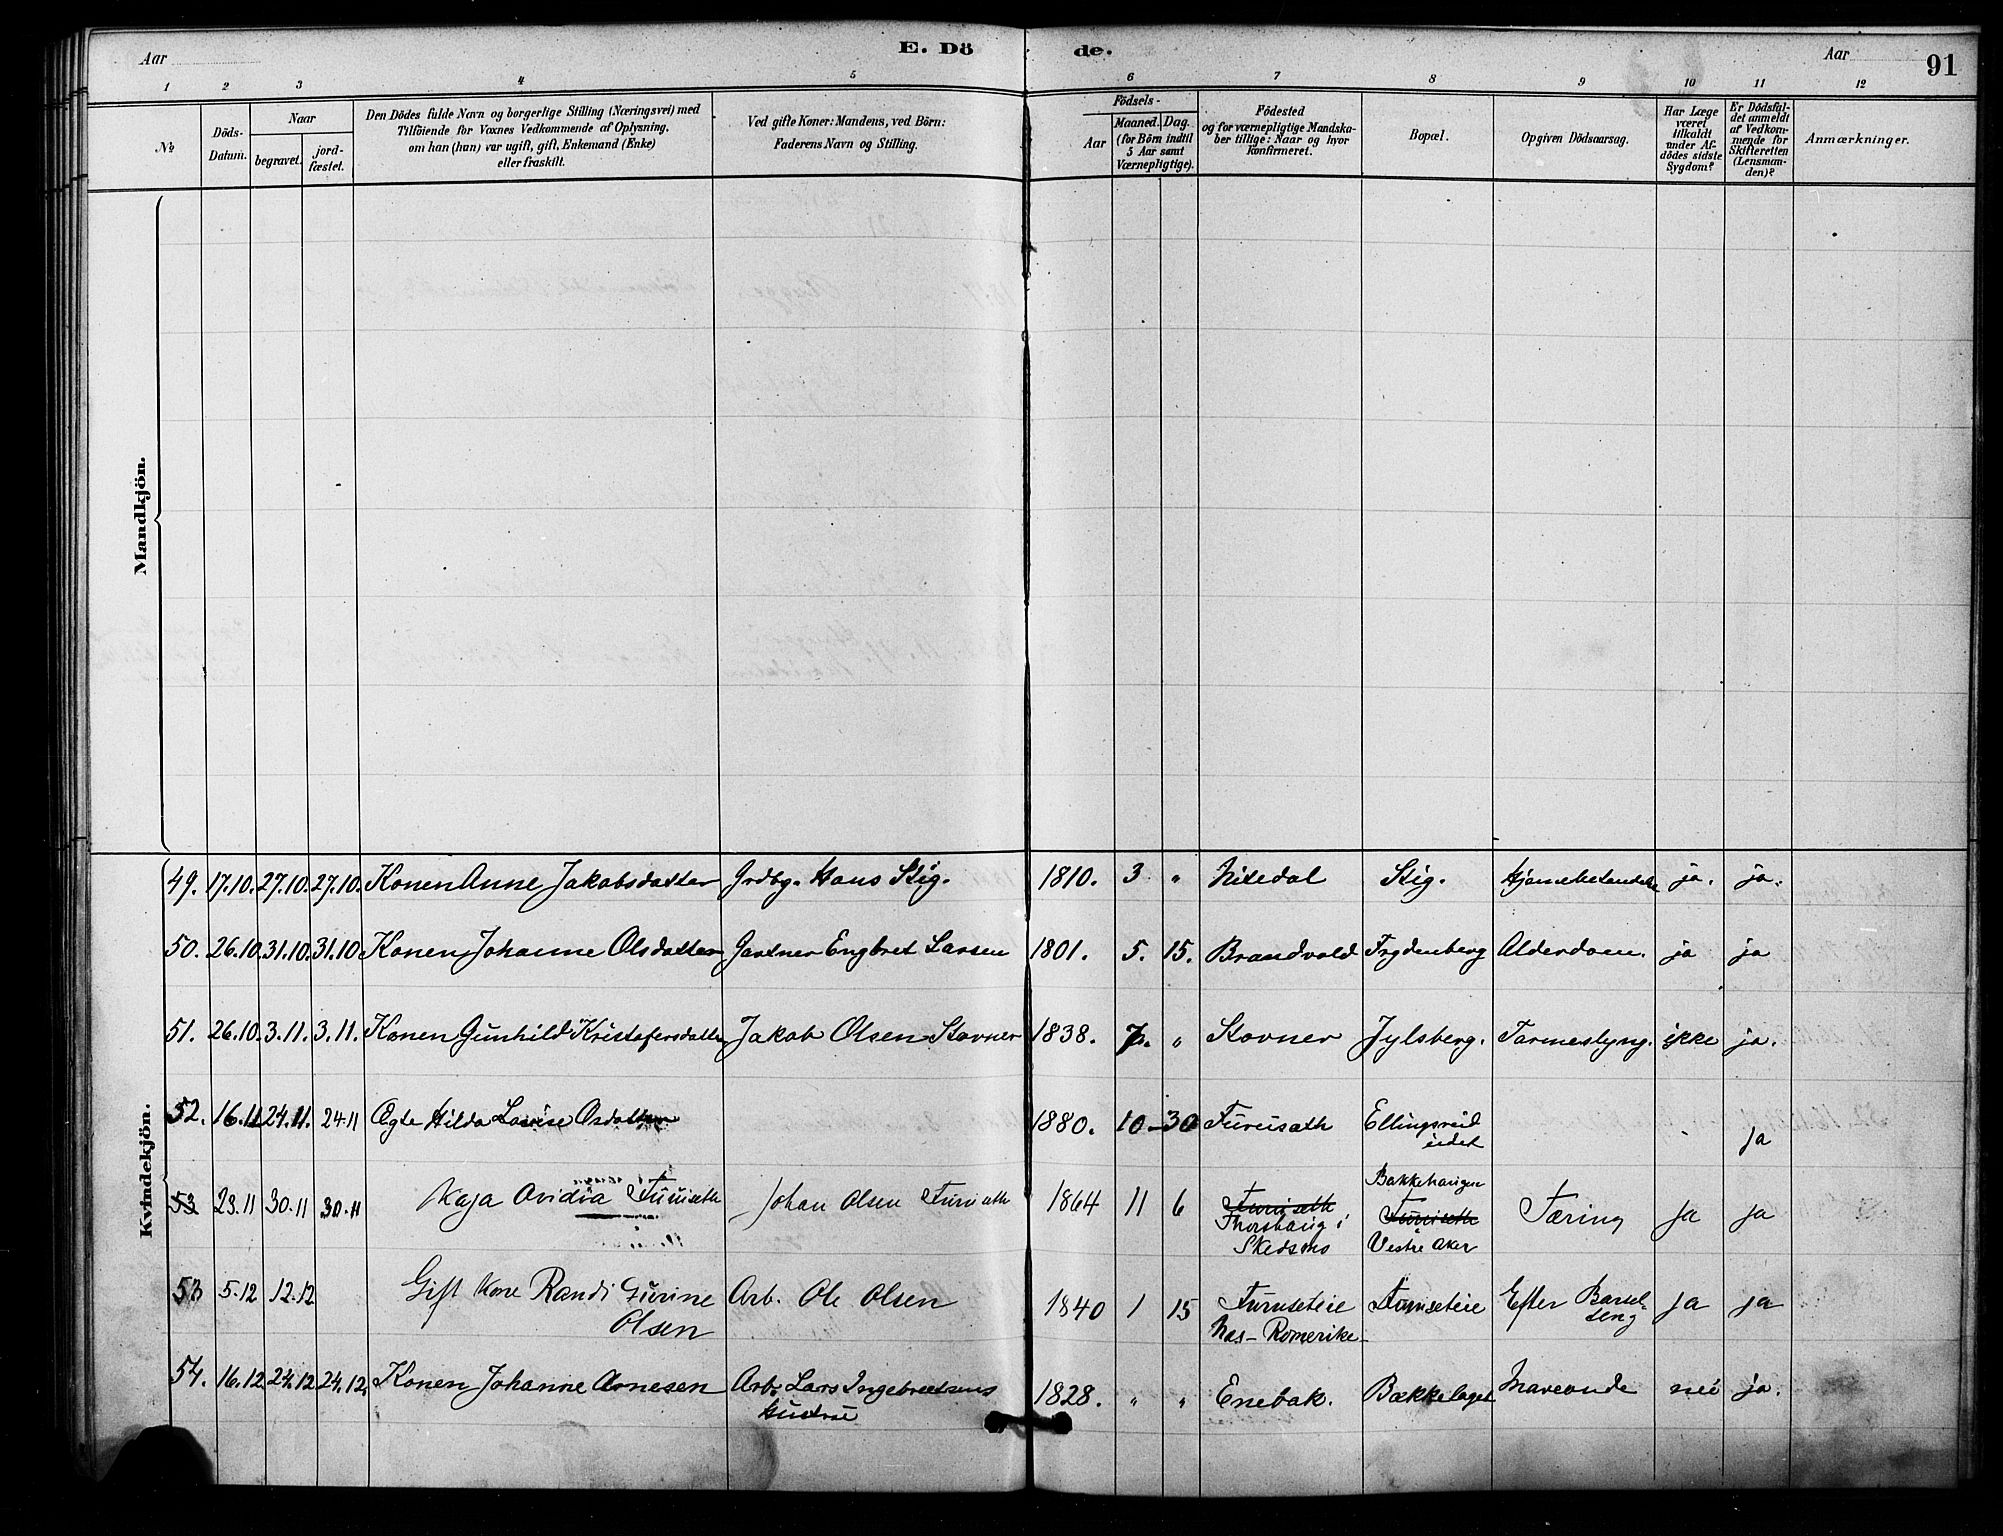 Aar
E. Dö
de.
Aar
91
1 2 3 4 5 6 7 8 9 10 11 12
No
Döds-
Datum.
Naar
begravet.
jord-
fæstet.
Den Dödes fulde Navn og borgerlige Stilling (Næringsvei) med
Tilföiende for Voxnes Vedkommende af Oplysning.
om han (hun) var ugift, gift, Enkemand (Enke)
eller fraskilt.
Ved gifte Koner: Mandens, ved Börn:
Faderens Navn og Stilling.
Födsels-
Aar
Maaned. Dag.
(for Börn indtil
5 Aar samt
Værnepligtige).
Födested
og for værnepligtige Mandska-
ber tillige: Naar og hvor
konfirmeret.
Bopæl.
Opgiven Dödsaarsag.
Har Læge
været
tilkaldt
under Af-
dödes sidste
Sygdom?
Er Dödsfal-
det anmeldt
af Vedkom-
mende for
Skifteretten
(Lensman-
den)?
Anmærkninger.
Mandkjön.
Kvindekjön.
49. 17.10. 27.10. 27.10. Konen Anne Jakobsdatter Grdbg. Hans Stig. 1810. 3 " Nitedal Stig. ja. ja.
50. 26.10. 31.10. 31.10 Konen Johanne Olsdatter Gartner Engbret Larsen 1801. 5. 15. Brandvold Frydenberg Alderdom. ja ja
51. 26.10. 3.11. 3.11. Konen Gunhild Kristofersdatter Jakob Olsen Stovner 1838. 7. " Stovner Jylsberg. Tarmeslyng. ikke ja.
52. 16.11 24.11. 24.11 Ægte Hilda Lovise Osdatter 1880. 10 - 30 Furusath Ellingsrud
eidet ja
53 23.11 30.11 30.11 Kaja Ovidia Furuseth Johan Olsen Furusath 1864 11 6 Furuseth
Thorshaug i
Skedsmo
Bakkehaugen
Furuseth
Vestre Aker
Tæring ja ja
53 5.12 12.12 Gift Kone Randi Gurine
Olsen
Arb. Ole Olsen 1840 1 15 Furuseteie
Nes - Romerike
Furuseteie Efter Barsel-
seng ja ja
54. 16.12 24.12 24.12. Konen Johanne Arnesen Arb. Lars Ingebretsens
Hustru
1828. " " Enebak. Bækkelaget Maveonde nei ja.